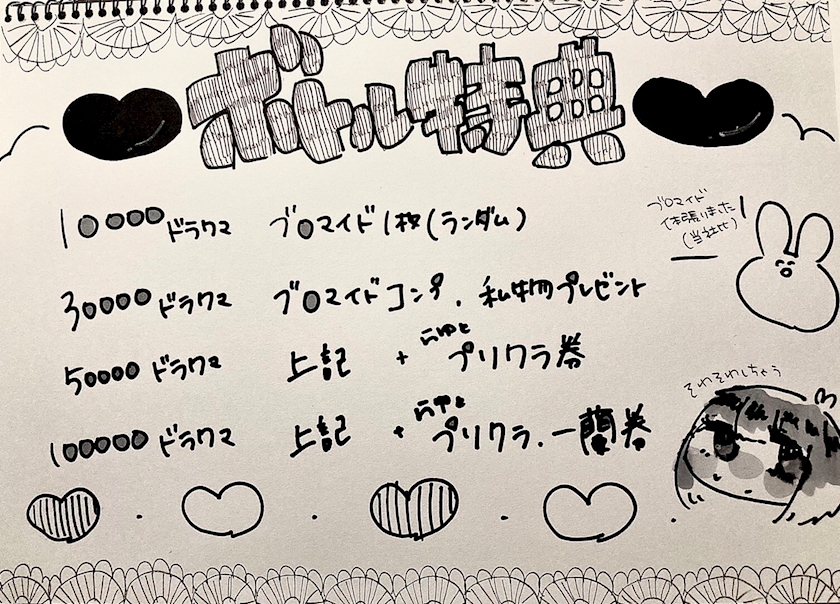 ボトル特典
10000ドラクマ ブロマイド1枚(ランダム)
ブロマイド
体張りました
(当社比)
30000ドラクマ ブロマイドコンプ、私物プレゼント
50000ドラクマ 上記 + プリクラ券
それそれしちゃう
100000ドラクマ 上記 + プリクラ、一蘭券